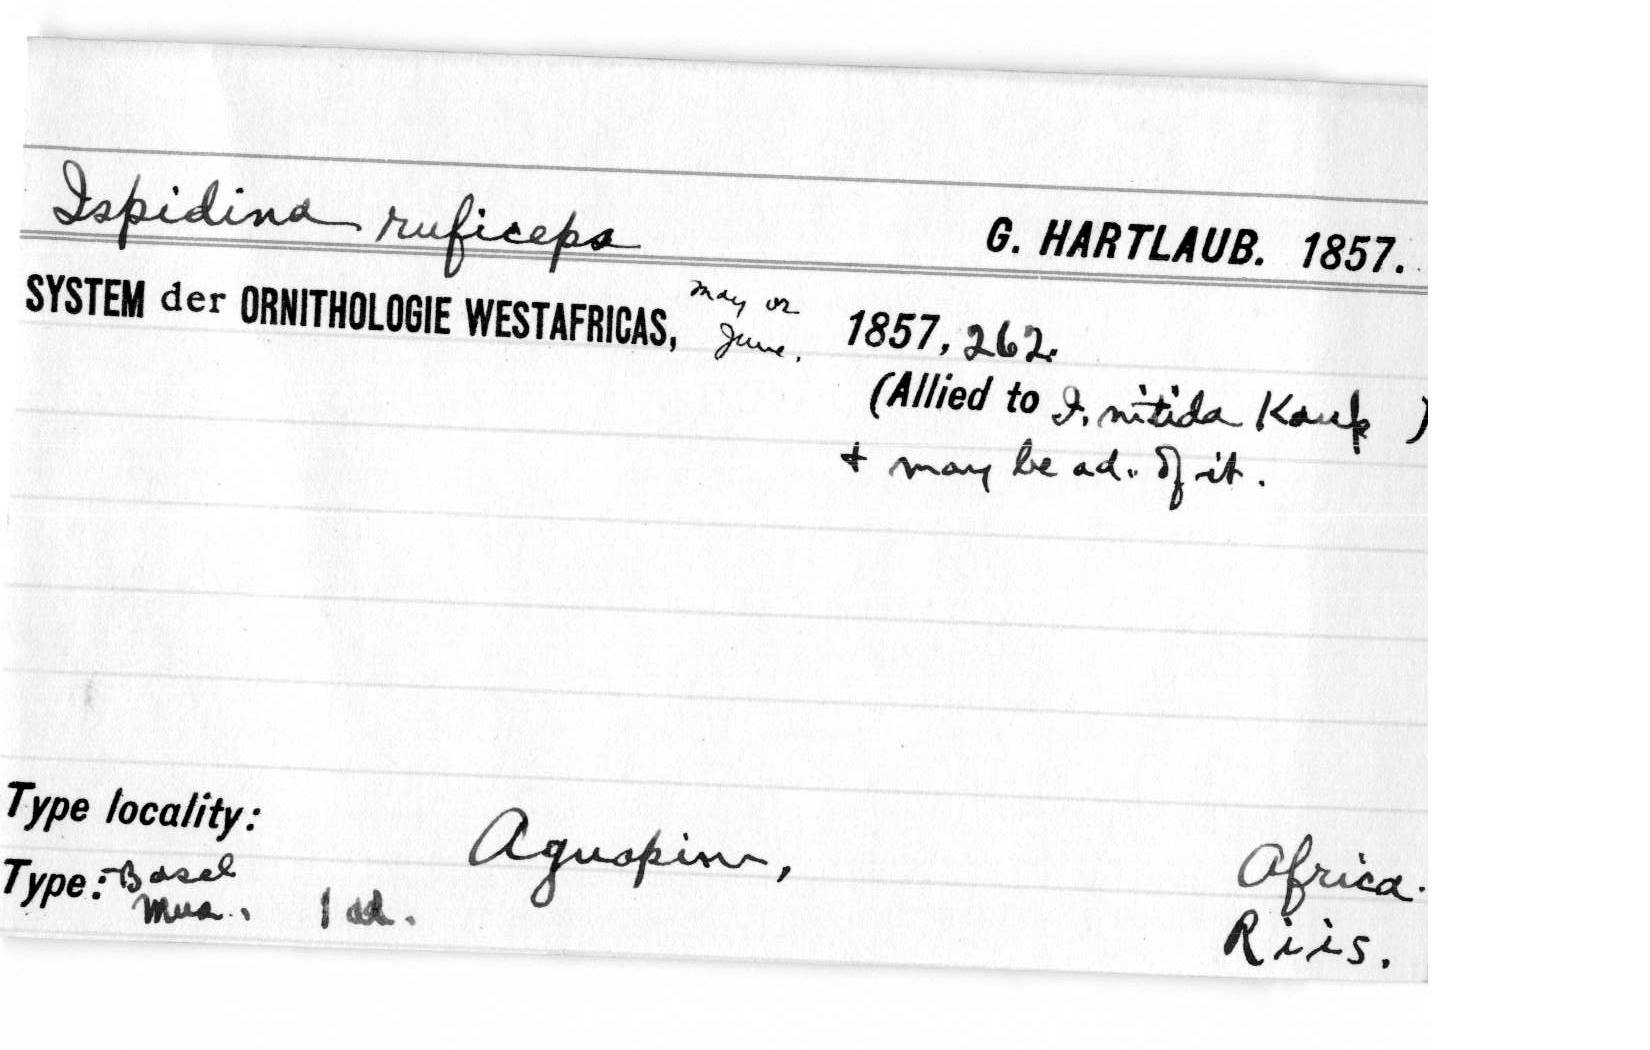 Ispidina ruficeps G. HARTLAUB. 1857.
SYSTEM der ORNITHOLOGIE WESTAFRICAS, may or June, 1857, 262.
(Allied to I. nitida Kaup )
+ may be ad. of it.
Type locality: Aguapim, Africa.
Type: Basel Mus. 1 ad. Riis.